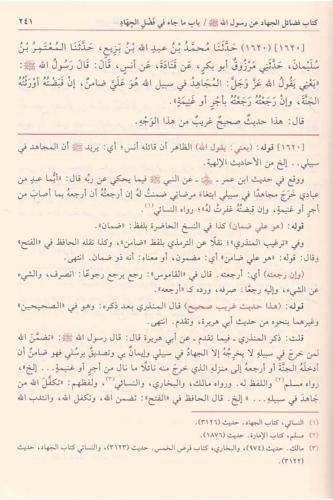 كتاب فضائل الجهاد عن رسول الله ﷺ / باب ما جاء في فَضْلِ الجِهَادِ ٢٤١
[١٦٢٠] (١٦٢٠) حَدَّثَنَا مُحَمَّدُ بْنُ عبدِ الله بْنِ بَزِيعٍ، حَدَّثَنَا المُعْتَمِرُ بْنُ
سُلَيْمَانَ، حَدَّثَنِي مَرْزُوقٌ أبو بكرٍ، عَن قَتَادَةَ، عَن أنَسٍ: قَالَ: قَالَ رَسُولُ الله ﷺ:
«يَعْنِي يَقُولُ الله عَزَّ وَجَلَّ: المُجَاهِدُ في سبيلِ الله هُوَ عَلَيَّ ضَامِنٌ، إنْ قَبَضْتُهُ أوْرَثْتُهُ
الجَنَّةَ، وإنْ رَجَعْتُهُ رَجَعْتُهُ بأَجْرٍ أو غَنِيمَةٍ».
قال: هذا حديثٌ صحيحٌ غريبٌ من هذا الوَجْهِ.
[١٦٢٠] قوله: (يعني: يقول الله) الظاهر أن قائله أنس؛ أي: يريد ﷺ أن المجاهد في
سبيلي .. إلخ من الأحاديث الإلهية.
ووقع في حديث ابن عمر ـ عن النبي ﷺ فيما يحكي عن ربِّه قال: «أيُّما عبدٍ من
عبادي خَرَجَ مجاهدًا في سبيلي ابتغاءَ مرضاتي ضمنتُ لهُ إن أرجعتُه أن أرجعه بما أصابَ من
أجرٍ أو غنيمةٍ، وإن قبضْتُه غفرتُ لَه»؛ رواه النسائي(١).
قوله: (هو علي ضمان) كذا في النسخ الحاضرة بلفظ: «ضمان».
وفي «ترغيب المنذري»؛ نقلًا عن الترمذي بلفظ «ضامن»، وكذا نقله الحافظ في «الفتح»
عن الترمذي بلفظ «ضامن»، أي: مضمون، أو معناه: أنه ذو ضمان. انتهى.
(وإن رجعته) أي: أرجعته. قال في «القاموس»: رجع يرجع رجوعًا: انصرف، والشيء
عن الشيء، وإليه رجعًا: صرفه، ورده كـ «أرجعه».
قوله: (هذا حديث غريب صحيح) قال المنذري بعد ذكره: وهو في «الصحيحين»
وغيرهما بنحوه من حديث أبي هريرة، وتقدم. انتهى.
قلت: ذكر المنذري، فيما تقدم ـ عن أبي هريرة قال: قال رسول الله ﷺ: «تضمَّنَ الله
لمن خرجَ في سبيلهِ لا يخرجُهُ إلا الجهادُ في سبيلي وإيمانٌ بي وتصديقٌ برسُلي فهو ضامنٌ أن
أدخلَهُ الجنَّةَ أو أرجعهُ إلى منزلهِ الذي خرجَ منه نائلًا ما نالَ من أجرٍ أو غنيمةٍ... إلخ»،
رواه مسلم(٢) واللفظ له. ورواه مالك، والبخاري، والنسائي(٣)، ولفظهم: «تكفَّلَ الله من
جَاهدَ في سبيلهِ... » إلخ. قال الحافظ في «الفتح»: تضمن الله، وتكفل الله، وانتدب الله
(١) النسائي، كتاب الجهاد، حديث (٣١٢٦).
(٢) مسلم، كتاب الإمارة، حديث (١٨٧٦).
(٣) مالك، حديث (٩٧٤)، والبخاري، كتاب فرض الخمس، حديث (٣١٢٣)، والنسائي كتاب الجهاد، حديث
(٣١٢٢).